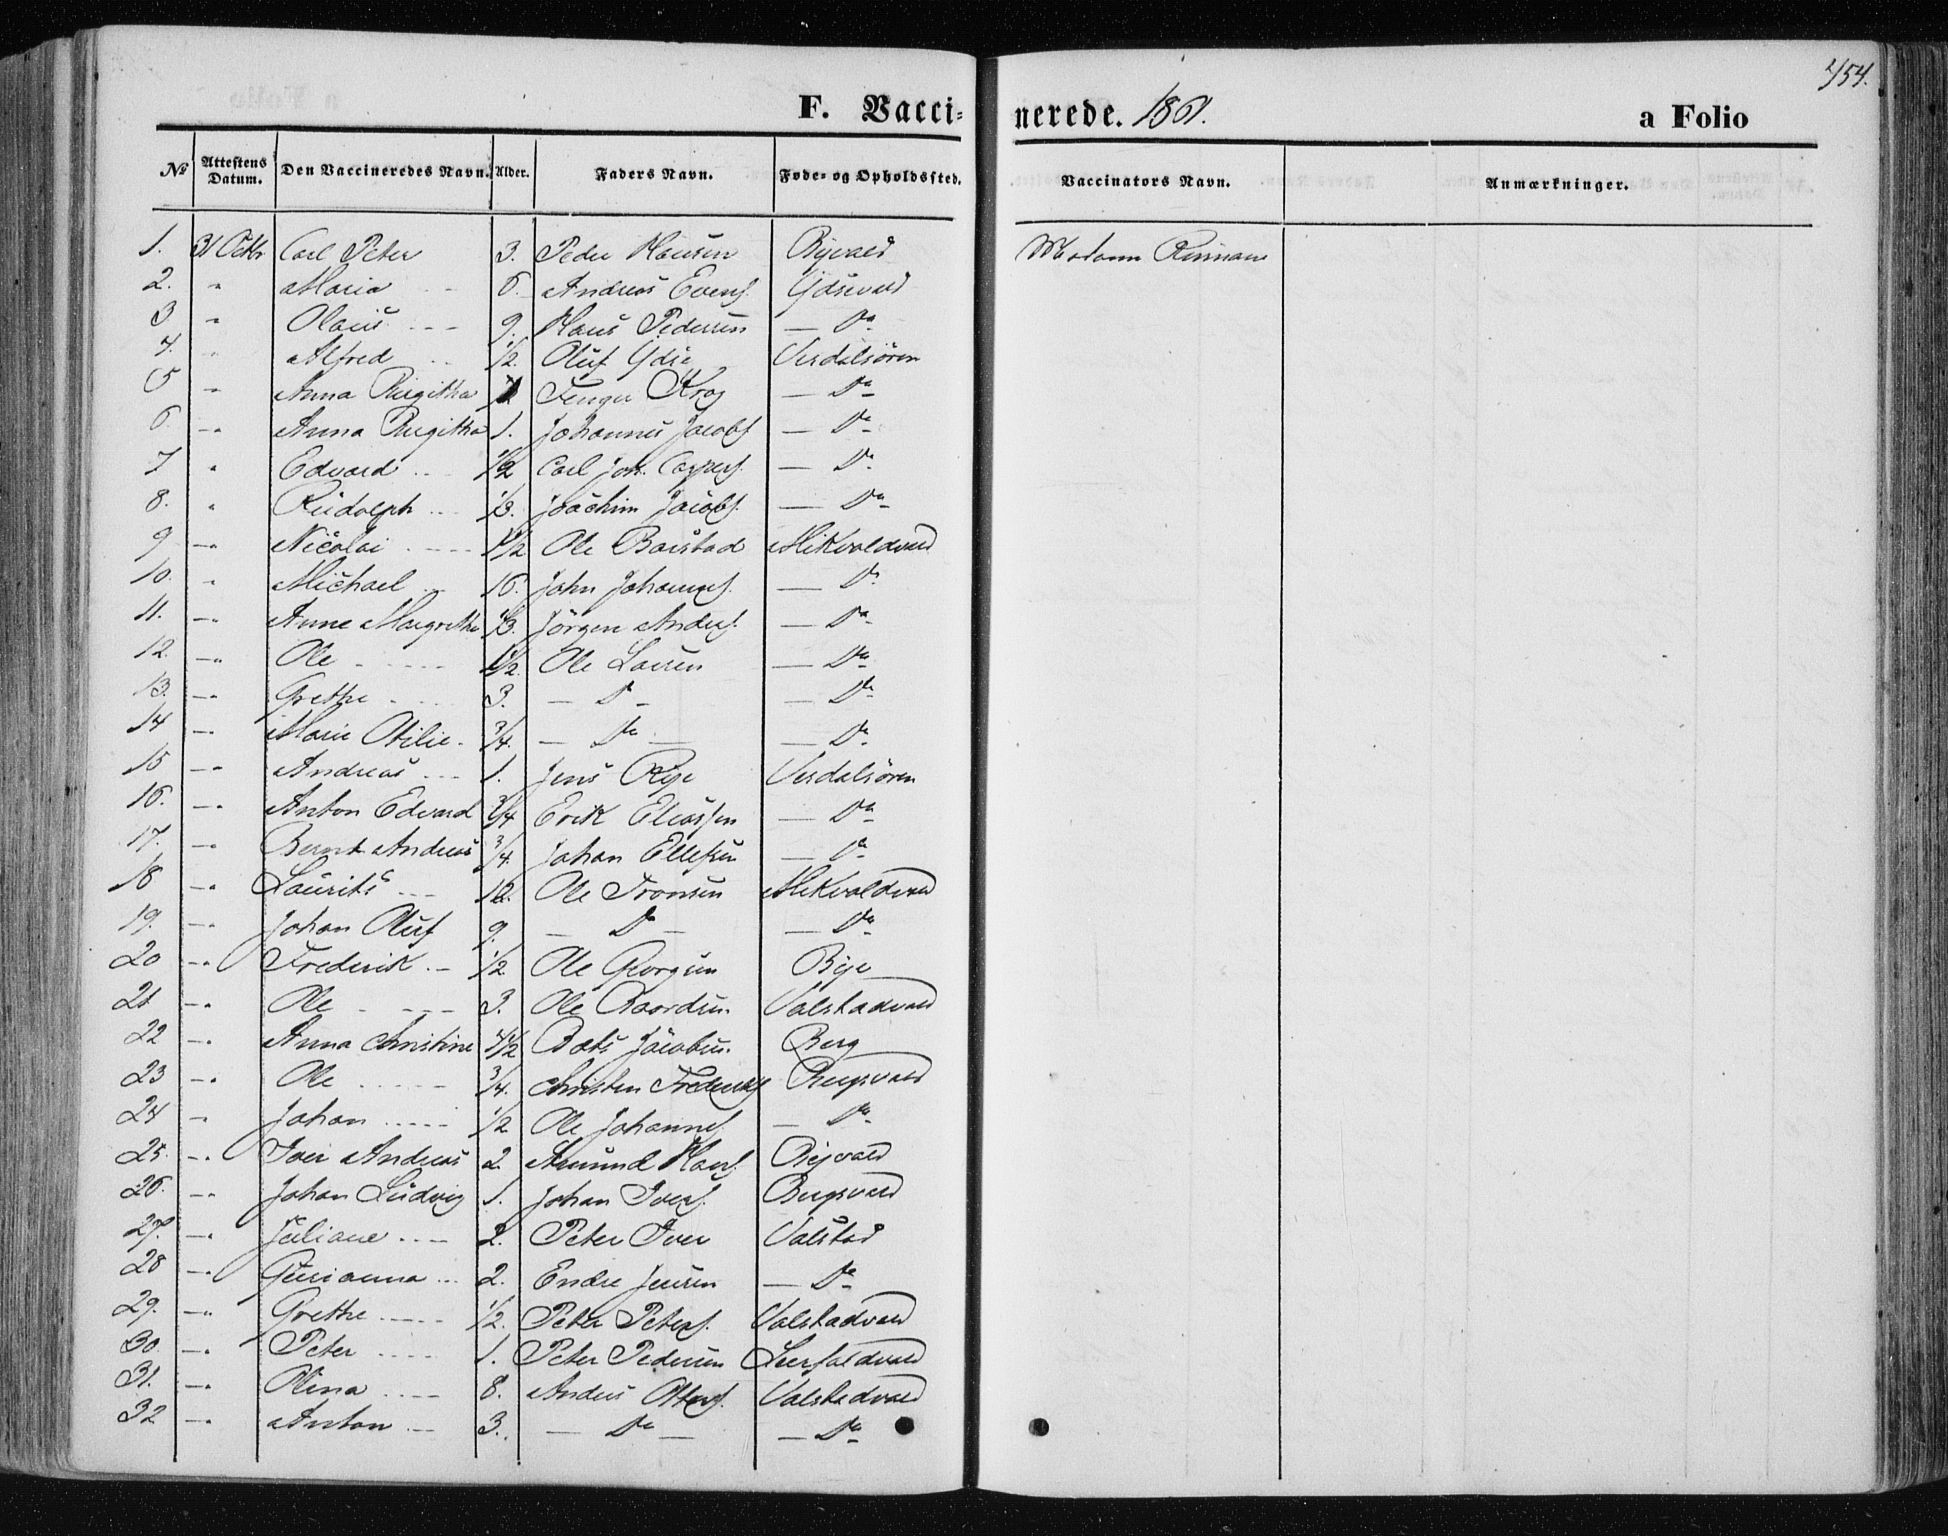 454.
F. Vaccinerede. 1861. a Folio
No Attestens Datum. Den Vaccineredes Navn. Alder. Faders Navn. Føde- og Opholdssted. Vaccinators Navn. Anmærkninger.
1. 31 Octbr Carl Peter 3. Peder Hansen Byevald Madam
2. " Maria 6. Andreas Evens. Ydsevald
3 " Olaus 9. Hans Pedersen — Do
4. " Alfred 1/2 Oluf Ydse Verdalsøren
5 " Anna Birgitha Krog — Do
6. " Anna Birgitha 1. Johannes Jacobs. — Do
7 " Edvard 1/2 Carl Joh. Caspers. — Do
8. " Rudolph 1/3. Joachim Jacobs. — Do
9 " Nicolai 1/2 Ole Borstad Mikvoldvald
10. " Michael 16. John Johannes. — Do
11. " Anne Margrethe Jørgen Anders. — Do
12. " Ole 1/2 Ole Larsen — Do
13. " Grethe 3. — Do — — Do
14 " Marie Otilie 3/4. — Do — — Do
15 " Andreas 1. Jens Rye Verdalsøren
16. " Anton Edvard 3/4 Erik Eliassen — Do
17. " Bernt Andreas 3/4. Johan Ellefsen — Do
18 " Laurits 12. Ole Tronsen Mikvoldvald
19. " Johan Oluf 9. — Do — — Do
20 " Frederik 1/2 Ole Georgsen Bye
21 " Ole 3. Ole Baardsen Valstadvald
22 " Anna Christine Bots Jacobsen Berg
23 " Ole 3/4. Christen Frederiks. Bergsvald
24 " Johan 1/2 Ole Johannes. — Do
25. " Iver Andreas 2. Amund Hans. Byevald
26. " Johan Ludvig 1. Johan Ivers. Bergsvald
27. " Juliane 2. Peter Iver Valstad
28 " Gurianna 2. Endre Jensen — Do
29. " Grethe 1/2. Peter Peters. Valstadvald
30. " Peter 1. Peter Pedersen Leerfaldvald
31. " Olina 8. Anders Ottes. Valstadvald
32 " Anton 3. — Do — — Do